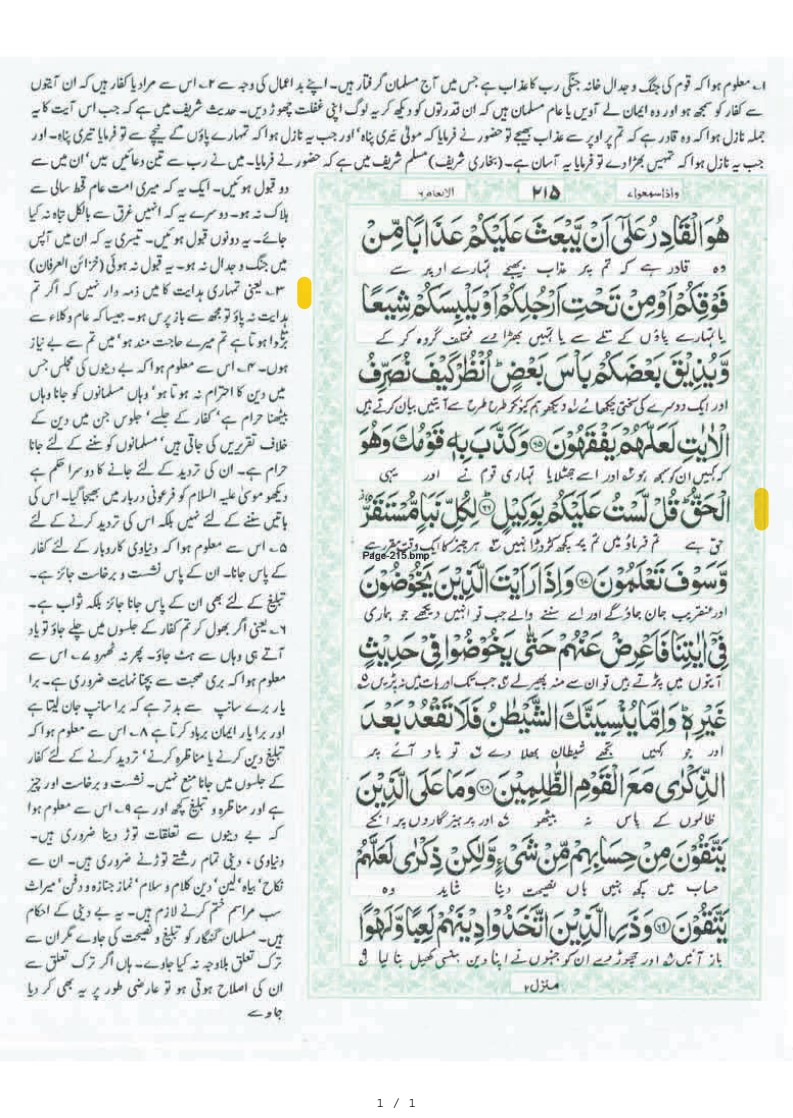 ۱؎ معلوم ہوا کہ قوم کی جنگ و جدال خانہ جنگی رب کا عذاب ہے جس میں آج مسلمان گرفتار ہیں۔ اپنے بد اعمال کی وجہ سے ۲؎ اس سے مراد یا کفار ہیں کہ ان آیتوں
سے کفار کو سمجھ ہو اور وہ ایمان لے آویں یا عام مسلمان ہیں کہ ان قدرتوں کو دیکھ کر یہ لوگ اپنی غفلت چھوڑ دیں۔ حدیث شریف میں ہے کہ جب اس آیت کا یہ
جملہ نازل ہوا کہ وہ قادر ہے کہ تم پر اوپر سے عذاب بھیجے تو حضور نے فرمایا کہ مولیٰ تیری پناہ' اور جب یہ نازل ہوا کہ تمہارے پاؤں کے نیچے سے تو فرمایا تیری پناہ۔ اور
جب یہ نازل ہوا کہ تمہیں بھڑا دے تو فرمایا یہ آسان ہے۔ (بخاری شریف) مسلم شریف میں ہے کہ حضور نے فرمایا۔ میں نے رب سے تین دعائیں ہیں' ان میں سے
دو قبول ہوئیں۔ ایک یہ کہ میری امت عام قحط سالی سے
ہلاک نہ ہو۔ دوسرے یہ کہ انہیں غرق سے بالکل تباہ نہ کیا
جائے۔ یہ دونوں قبول ہوئیں۔ تیسری یہ کہ ان میں آپس
میں جنگ و جدال نہ ہو۔ یہ قبول نہ ہوئی (خزائن العرفان)
۳؎ یعنی تمہاری ہدایت کا میں ذمہ دار نہیں کہ اگر تم
ہدایت نہ پاؤ تو مجھ سے باز پرس ہو۔ جیسا کہ عام وکلاء سے
ہوا ہوتا ہے تم میرے حاجت مند ہو' میں تم سے بے نیاز
ہوں۔ ۴؎ اس سے معلوم ہوا کہ بے دینوں کی مجلس جس
میں دین کا احترام نہ ہوتا ہو' وہاں مسلمانوں کو جانا وہاں
بیٹھنا حرام ہے' کفار کے جلسے' جلوس جن میں دین کے
خلاف تقریریں کی جاتی ہیں' مسلمانوں کو سننے کے لئے جانا
حرام ہے۔ ان کی تردید کے لئے جانے کا دوسرا حکم ہے
دیکھو موسیٰ علیہ السلام کو فرعونی دربار میں بھیجا گیا۔ اس کی
باتیں سننے کے لئے نہیں بلکہ اس کی تردید کرنے کے لئے
۵؎ اس سے معلوم ہوا کہ دنیاوی کاروبار کے لئے کفار
کے پاس جانا۔ ان کے پاس نشست و برخاست جائز ہے۔
تبلیغ کے لئے بھی ان کے پاس جانا جائز بلکہ ثواب ہے۔
۶؎ یعنی اگر بھول کر تم کفار کے جلسوں میں چلے جاؤ تو یاد
آتے ہی وہاں سے ہٹ جاؤ۔ پھر نہ ٹھہرو ۷؎ اس سے
معلوم ہوا کہ بری صحبت سے بچنا نہایت ضروری ہے۔ برا
یار برے سانپ سے بدتر ہے کہ برا سانپ جان لیتا ہے
اور برا یار ایمان برباد کرتا ہے ۸؎ اس سے معلوم ہوا کہ
تبلیغ دین کرنے یا مناظرہ کرنے' تردید کرنے کے لئے کفار
کے جلسوں میں جانا منع نہیں۔ نشست و برخاست اور چیز
ہے اور مناظرہ و تبلیغ کچھ اور ہے ۹؎ اس سے معلوم ہوا
کہ بے دینوں سے تعلقات توڑ دینا ضروری ہیں۔
دنیاوی، دینی تمام رشتے توڑنے ضروری ہیں۔ ان سے
نکاح' بیاہ' لین' دین کلام و سلام' نماز جنازہ و دفن' میراث
سب مراسم ختم کرنے لازم ہیں۔ یہ بے دینی کے احکام
ہیں۔ مسلمان گنہگار کو تبلیغ و نصیحت کی جاوے مگر ان سے
ترک تعلق بلاوجہ نہ کیا جاوے۔ ہاں اگر ترک تعلق سے
ان کی اصلاح ہوتی ہو تو عارضی طور پر یہ بھی کر دیا
جاوے
واذاسمعوا۷ ۲۱۵ الانعام۶
هُوَ الْقَادِرُ عَلٰٓى اَنْ يَّبْعَثَ عَلَيْكُمْ عَذَابًا مِّنْ
وہ قادر ہے کہ تم پر عذاب بھیجے تمہارے اوپر سے
فَوْقِكُمْ اَوْ مِنْ تَحْتِ اَرْجُلِكُمْ اَوْ يَلْبِسَكُمْ شِيَعًا
یا تمہارے پاؤں کے تلے سے یا تمہیں بھڑا دے مختلف گروہ کر کے
وَّيُذِيْقَ بَعْضَكُمْ بَاْسَ بَعْضٍ ؕ اُنْظُرْ كَيْفَ نُصَرِّفُ
اور ایک دوسرے کی سختی چکھائے ۱؎ دیکھو ہم کیونکر طرح طرح سے آیتیں بیان کرتے ہیں
الْاٰيٰتِ لَعَلَّهُمْ يَفْقَهُوْنَ ۶۵ وَكَذَّبَ بِهٖ قَوْمُكَ وَهُوَ
کہ کہیں ان کو سمجھ ہو ۲؎ اور اسے جھٹلایا تمہاری قوم نے اور یہی
الْحَقُّ ؕ قُلْ لَّسْتُ عَلَيْكُمْ بِوَكِيْلٍ ؕ ۶۶ لِكُلِّ نَبَاٍ مُّسْتَقَرٌّ ؗ
حق ہے تم فرماؤ میں تم پر کچھ کڑوڑا نہیں ۳؎ ہر چیز کا ایک وقت مقرر ہے
Page-215.bmp
وَّسَوْفَ تَعْلَمُوْنَ ۶۷ وَاِذَا رَاَيْتَ الَّذِيْنَ يَخُوْضُوْنَ
اور عنقریب جان جاؤ گے اور اے سننے والے جب تو انہیں دیکھے جو ہماری
فِيْٓ اٰيٰتِنَا فَاَعْرِضْ عَنْهُمْ حَتّٰى يَخُوْضُوْا فِيْ حَدِيْثٍ
آیتوں میں پڑتے ہیں تو ان سے منہ پھیر لے ۴؎ جب تک اور بات میں نہ پڑیں ۵؎
غَيْرِهٖ ؕ وَاِمَّا يُنْسِيَنَّكَ الشَّيْطٰنُ فَلَا تَقْعُدْ بَعْدَ
اور جو کہیں تجھے شیطان بھلا دے ۶؎ تو یاد آئے پر
الذِّكْرٰى مَعَ الْقَوْمِ الظّٰلِمِيْنَ ۶۸ وَمَا عَلَى الَّذِيْنَ
ظالموں کے پاس نہ بیٹھو ۷؎ اور پرہیزگاروں پر انکے
يَتَّقُوْنَ مِنْ حِسَابِهِمْ مِّنْ شَيْءٍ وَّلٰكِنْ ذِكْرٰى لَعَلَّهُمْ
حساب میں کچھ نہیں ہاں نصیحت دینا شاید وہ
يَتَّقُوْنَ ۶۹ وَذَرِ الَّذِيْنَ اتَّخَذُوْا دِيْنَهُمْ لَعِبًا وَّلَهْوًا
باز آئیں ۸؎ اور چھوڑ دے ان کو جنہوں نے اپنا دین ہنسی کھیل بنا لیا ۹؎
منزل۲
1 / 1